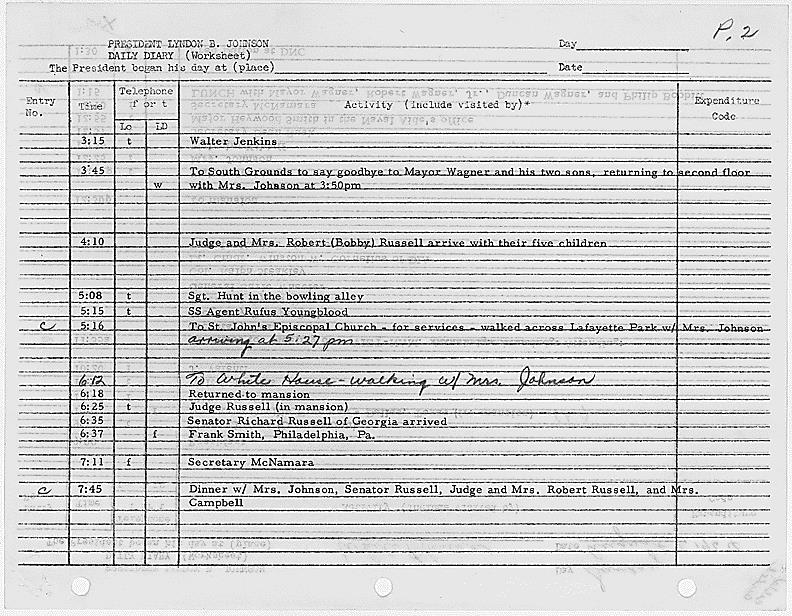 P. 2
PRESIDENT LYNDON B. JOHNSON
DAILY DIARY (Worksheet)
Day
The President began his day at (place)
Date
Entry No.
Time
Telephone f or t
Lo
LD
Activity (include visited by)*
Expenditure Code
3:15 t Walter Jenkins
3:45 To South Grounds to say goodbye to Mayor Wagner and his two sons, returning to second floor
w with Mrs. Johnson at 3:50pm
4:10 Judge and Mrs. Robert (Bobby) Russell arrive with their five children
5:08 t Sgt. Hunt in the bowling alley
5:15 t SS Agent Rufus Youngblood
c 5:16 To St. John's Episcopal Church - for services - walked across Lafayette Park w/ Mrs. Johnson
arriving at 5:27 pm
6:12 To White House - walking w/ Mrs. Johnson
6:18 Returned to mansion
6:25 t Judge Russell (in mansion)
6:35 Senator Richard Russell of Georgia arrived
6:37 f Frank Smith, Philadelphia, Pa.
7:11 f Secretary McNamara
c 7:45 Dinner w/ Mrs. Johnson, Senator Russell, Judge and Mrs. Robert Russell, and Mrs.
Campbell